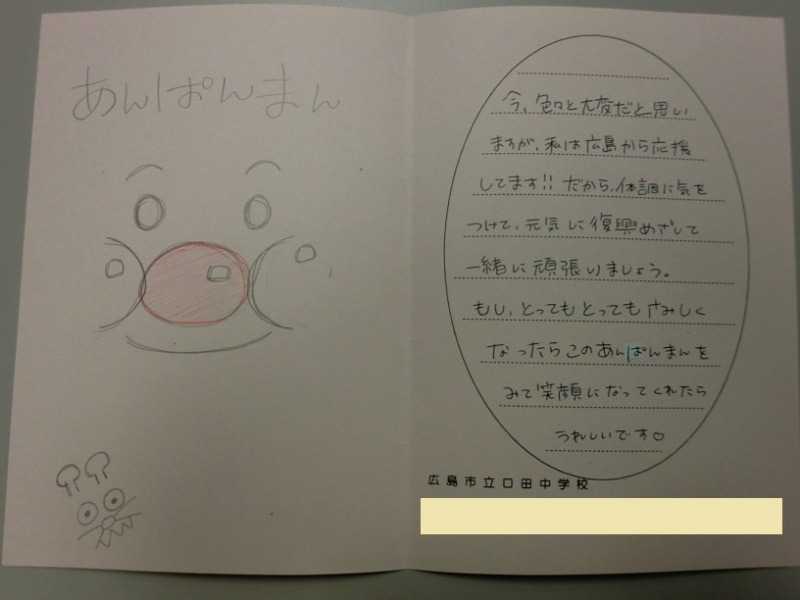 あんぱんまん
今、色々と大変だと思い
ますが、私は広島から応援
してます!! だから、体調に気を
つけて、元気に復興めざして
一緒に頑張りましょう。
もし、とってもとってもさみしく
なったらこのあんぱんまんを
みて笑顔になってくれたら
うれしいです♡
広島市立口田中学校